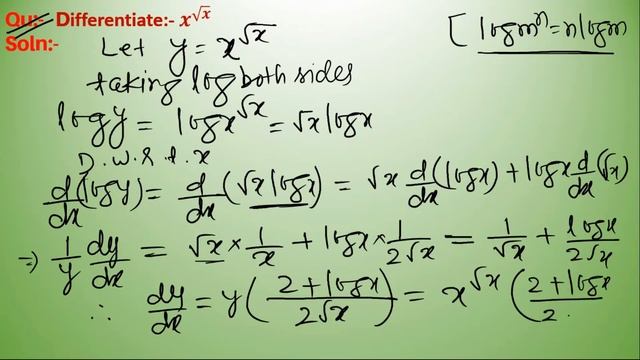 Qu:- Differentiate:- x^√x
Soln:-
[ logmⁿ = n logm
Let y = x^√x
taking log both sides
logy = logx^√x = √x logx
D. w. r. t. x
d/dx (logy) = d/dx (√x logx) = √x d/dx (logx) + logx d/dx (√x)
⇒ 1/y dy/dx = √x × 1/x + logx × 1/2√x = 1/√x + logx/2√x
∴ dy/dx = y( 2+logx / 2√x ) = x^√x ( 2+logx / 2